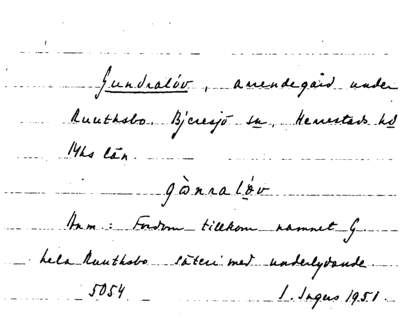 Gundralöv, arrendegård under
Ruuthsbo, Bjeresjö sn, Herrestads hd
Mhs län.
gònralöv
Anm: Fordom tillkom namnet G
hela Ruuthsbo säteri med underlydande
5054 1. Ingers 1951.